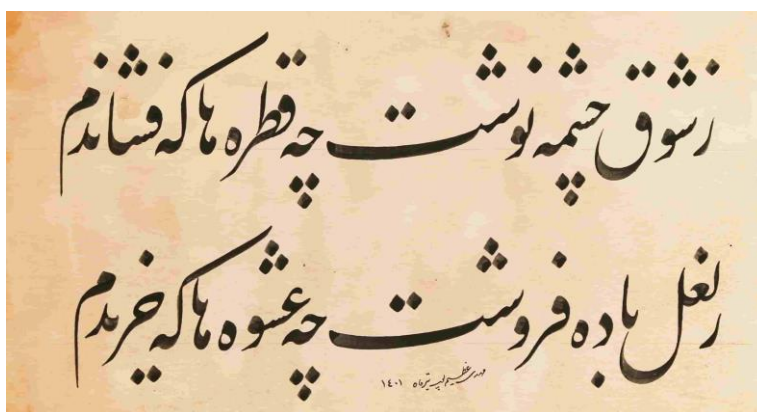 ز شوق چشمه نوشت چه قطره ها که فشاندم
ز لعل باده فروشت چه عشوه ها که خریدم
تیرماه ۱۴۰۱